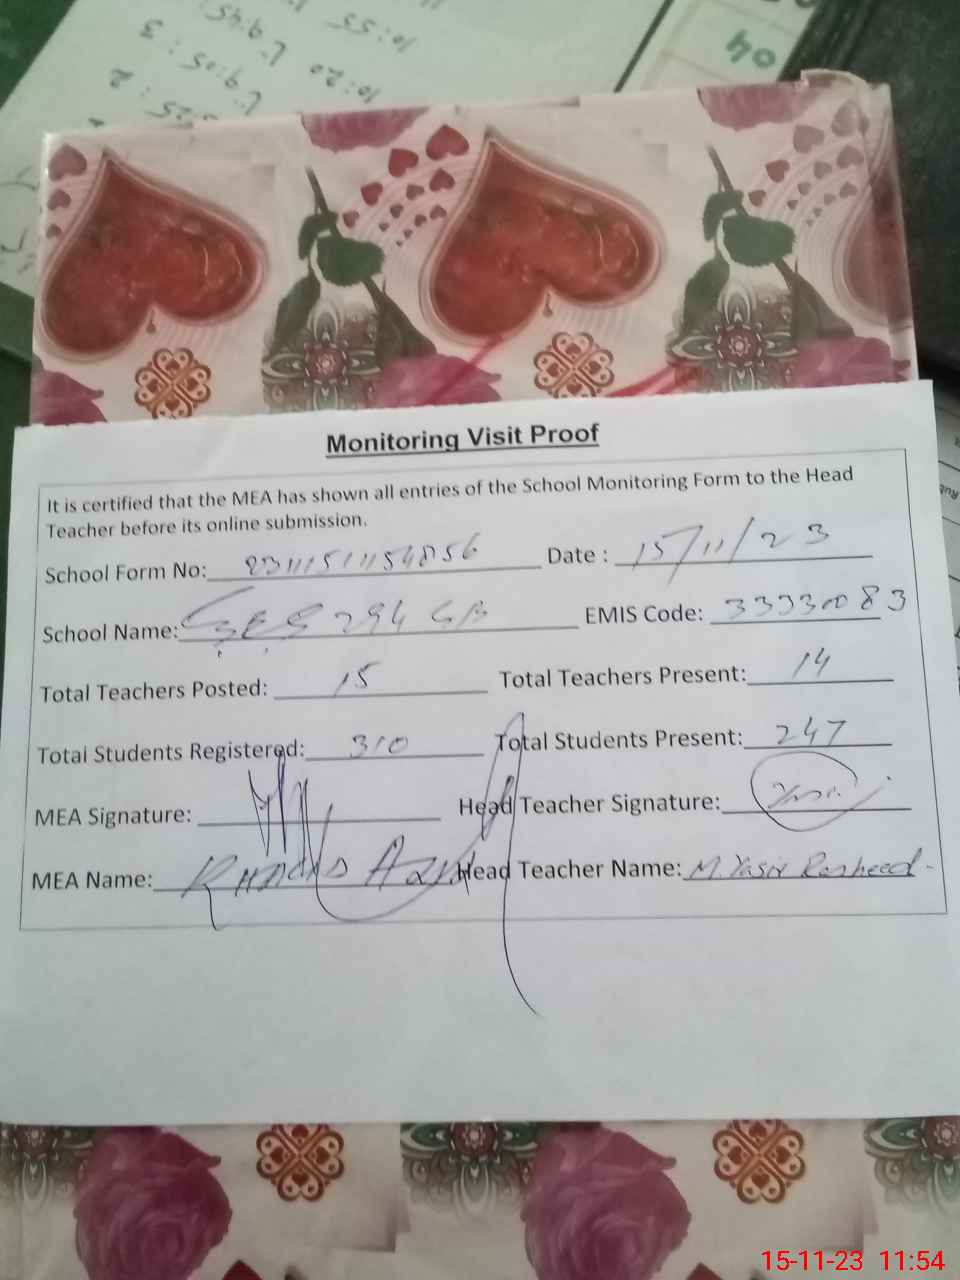 10:55
10:20
04
Monitoring Visit Proof
It is certified that the MEA has shown all entries of the School Monitoring Form to the Head
Teacher before its online submission.
School Form No: 231115115485​6 Date : 15/11/23
School Name: GES 294 GB EMIS Code: 33330083
Total Teachers Posted: 15 Total Teachers Present: 14
Total Students Registered: 310 Total Students Present: 247
MEA Signature: Head Teacher Signature: Yasir
MEA Name: Head Teacher Name: M. Yasir Rasheed
15-11-23 11:54